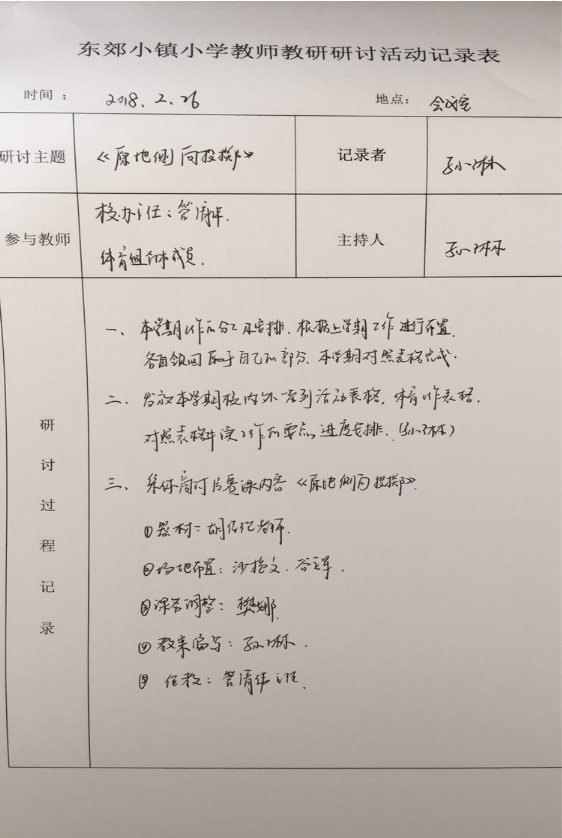 东郊小镇小学教师教研研讨活动记录表
时间： 2018.2.26 地点： 会议室
研讨主题 《原地侧向投掷》 记录者 孙小林
参与教师 校办主任：管清华. 体育组全体成员. 主持人 孙小林
研讨过程记录
一、本学期工作的分工及安排、根据上学期工作进行布置.
各自领回属于自己的部分、本学期对照表格完成.
二、发放本学期校内外系列活动表格，体育工作表格，
对照表格解读工作的要点、进度安排、（孙小林）
三、集体商讨片赛课内容《原地侧向投掷》
①器材：胡 老师.
②场地布置：沙 文、谷 军.
③课务调整：樊娜
④教案编写：孙小林.
⑤任教：管清华主任.